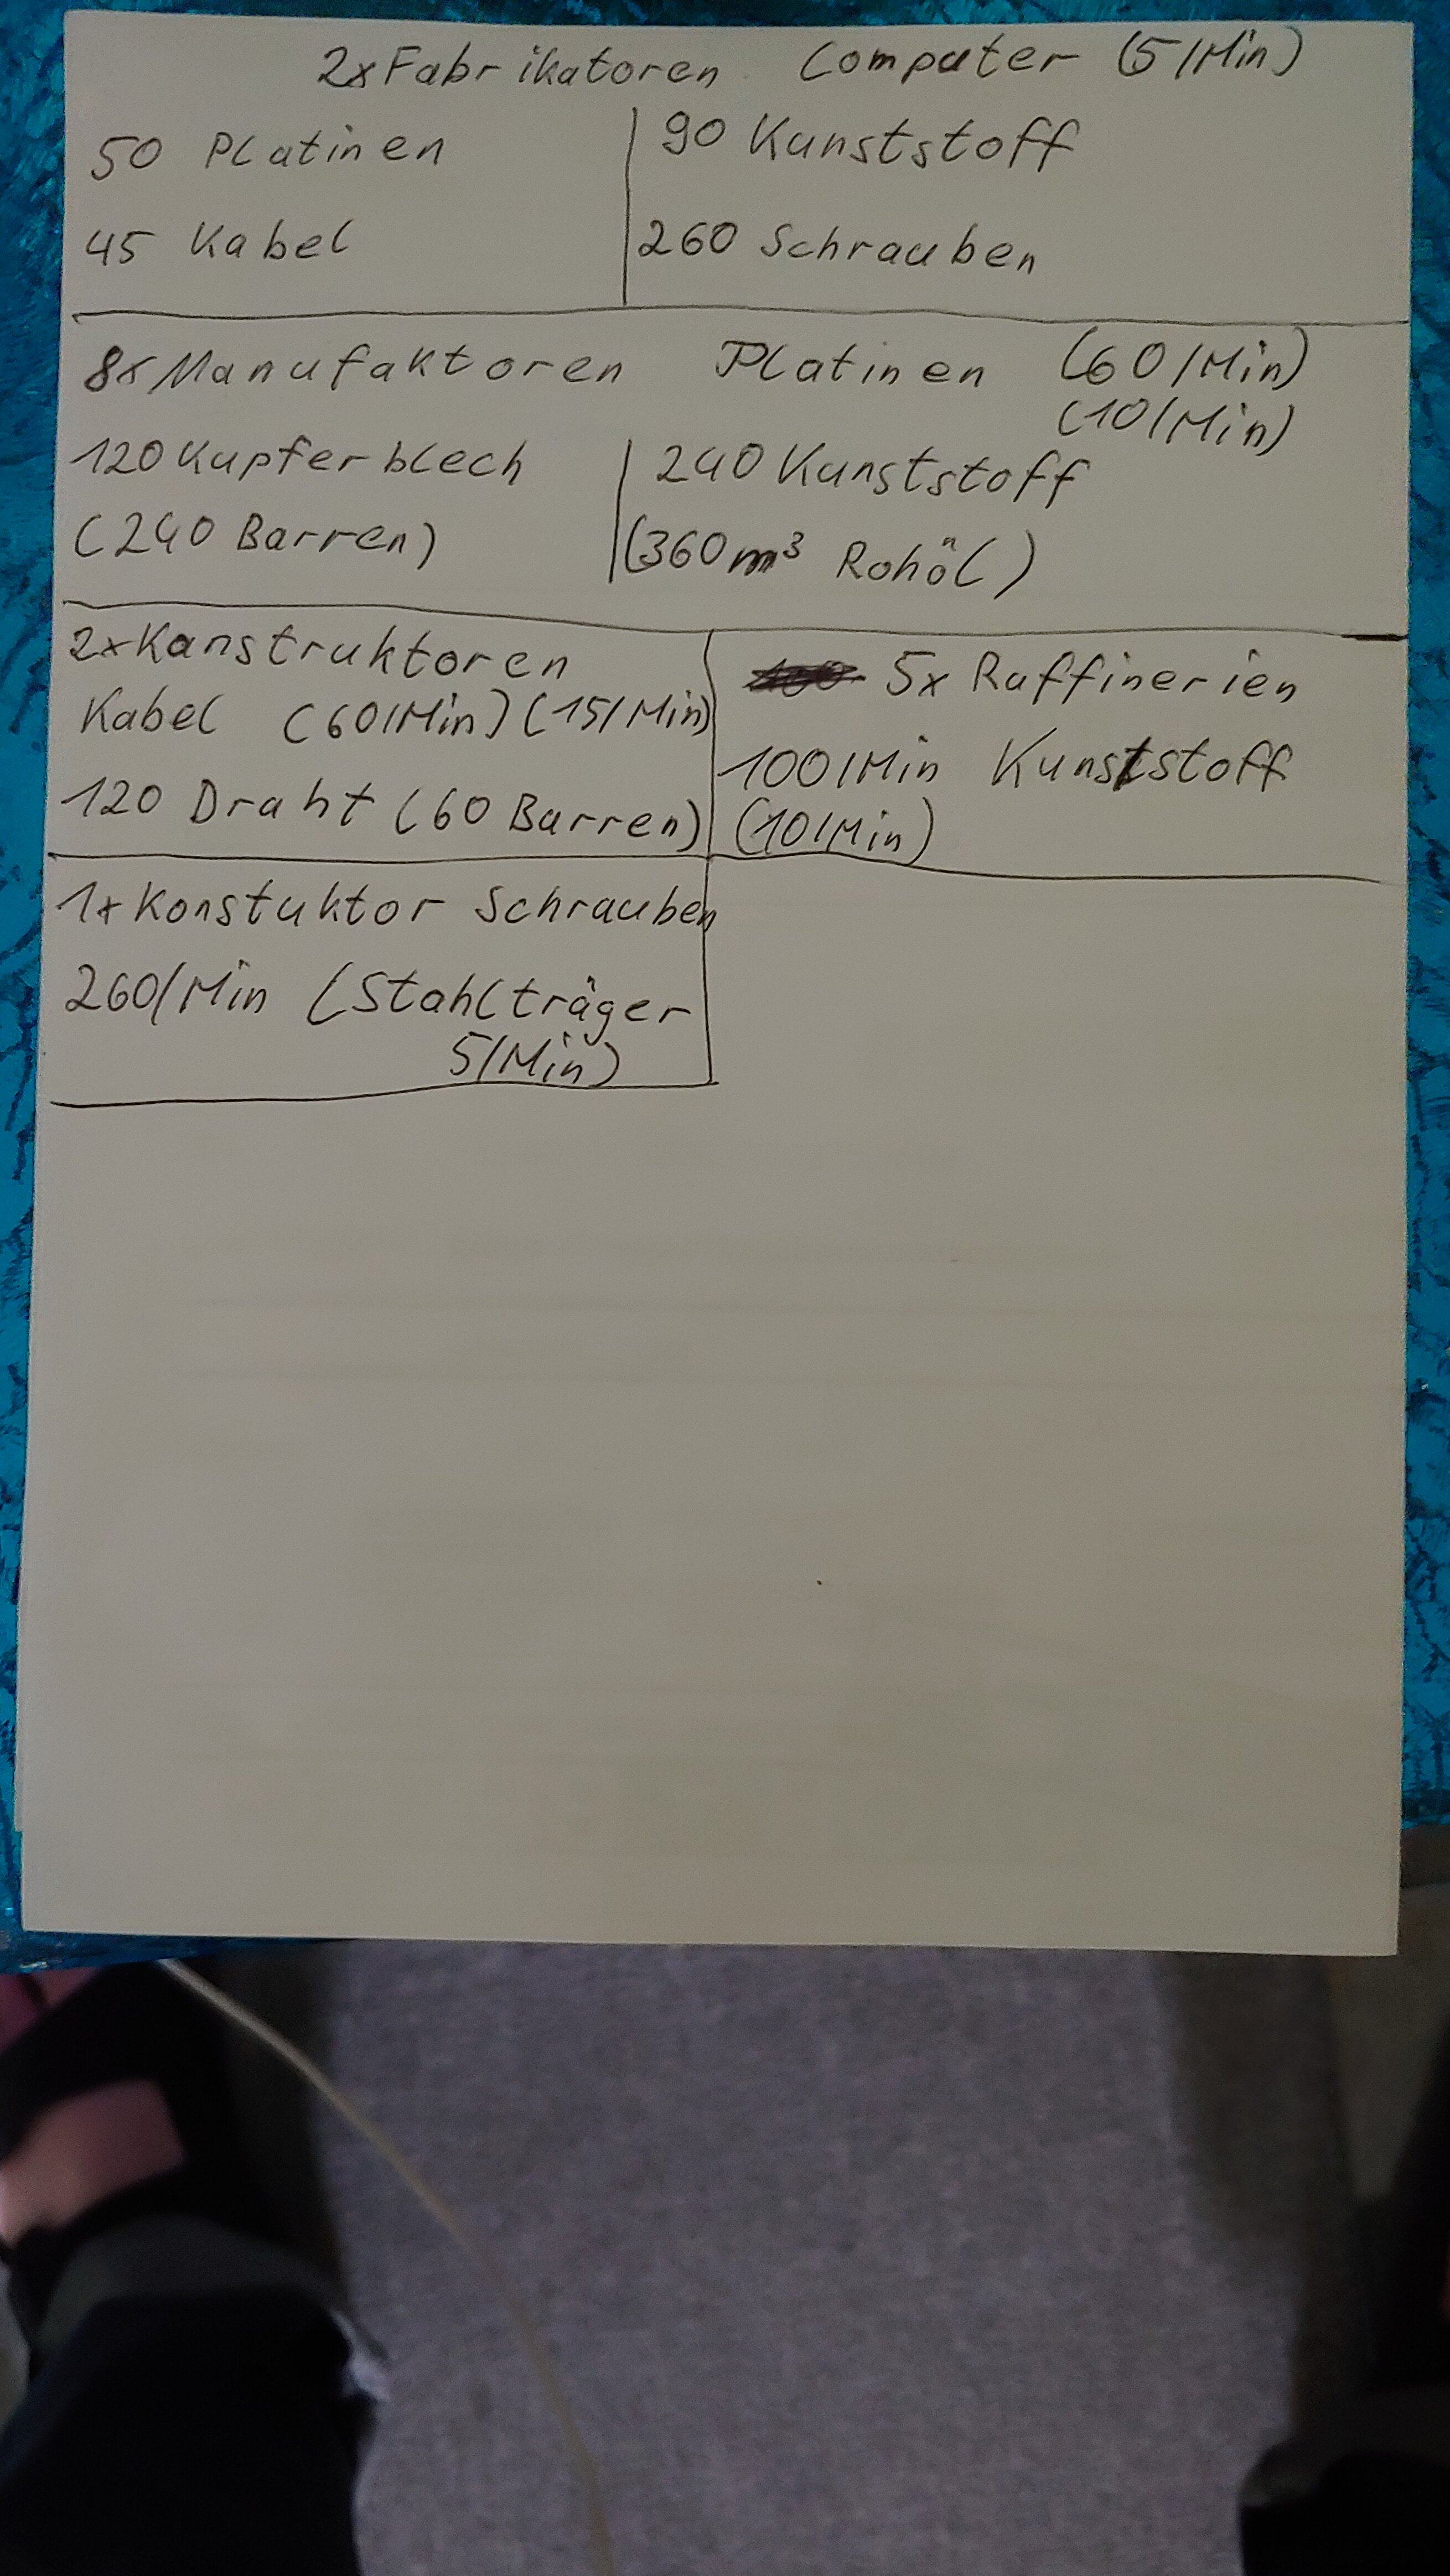 2xFabrikatoren Computer (5/Min)
50 Platinen
90 Kunststoff
45 Kabel
260 Schrauben
8xManufaktoren Platinen (60/Min)
(10/Min)
120 Kupferblech
240 Kunststoff
(240 Barren)
(360m³ Rohöl)
2xKonstruktoren
Kabel (60/Min) (15/Min)
120 Draht (60 Barren)
5x Raffinerien
100/Min Kunststoff
(10/Min)
1xKonstuktor Schrauben
260/Min (Stahlträger
5/Min)